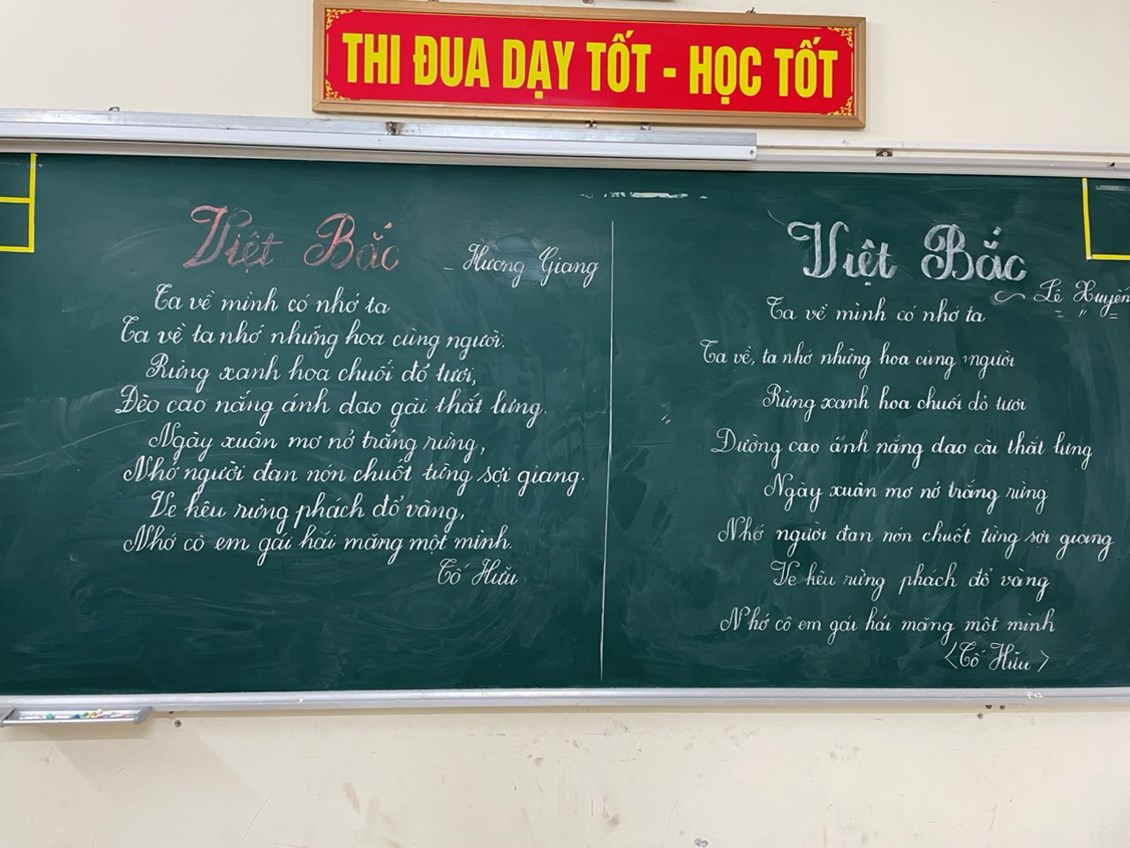 THI ĐUA DẠY TỐT - HỌC TỐT
Việt Bắc
- Hương Giang
Ta về mình có nhớ ta
Ta về ta nhớ những hoa cùng người.
Rừng xanh hoa chuối đỏ tươi,
Đèo cao nắng ánh dao gài thắt lưng.
Ngày xuân mơ nở trắng rừng,
Nhớ người đan nón chuốt từng sợi giang.
Ve kêu rừng phách đổ vàng,
Nhớ cô em gái hái măng một mình.
Tố Hữu
Việt Bắc
~ Lê Huyền
Ta về mình có nhớ ta
Ta về, ta nhớ những hoa cùng người
Rừng xanh hoa chuối đỏ tươi
Đường cao ánh nắng dao cài thắt lưng
Ngày xuân mơ nở trắng rừng
Nhớ người đan nón chuốt từng sợi giang
Ve kêu rừng phách đổ vàng
Nhớ cô em gái hái măng một mình
<Tố Hữu>